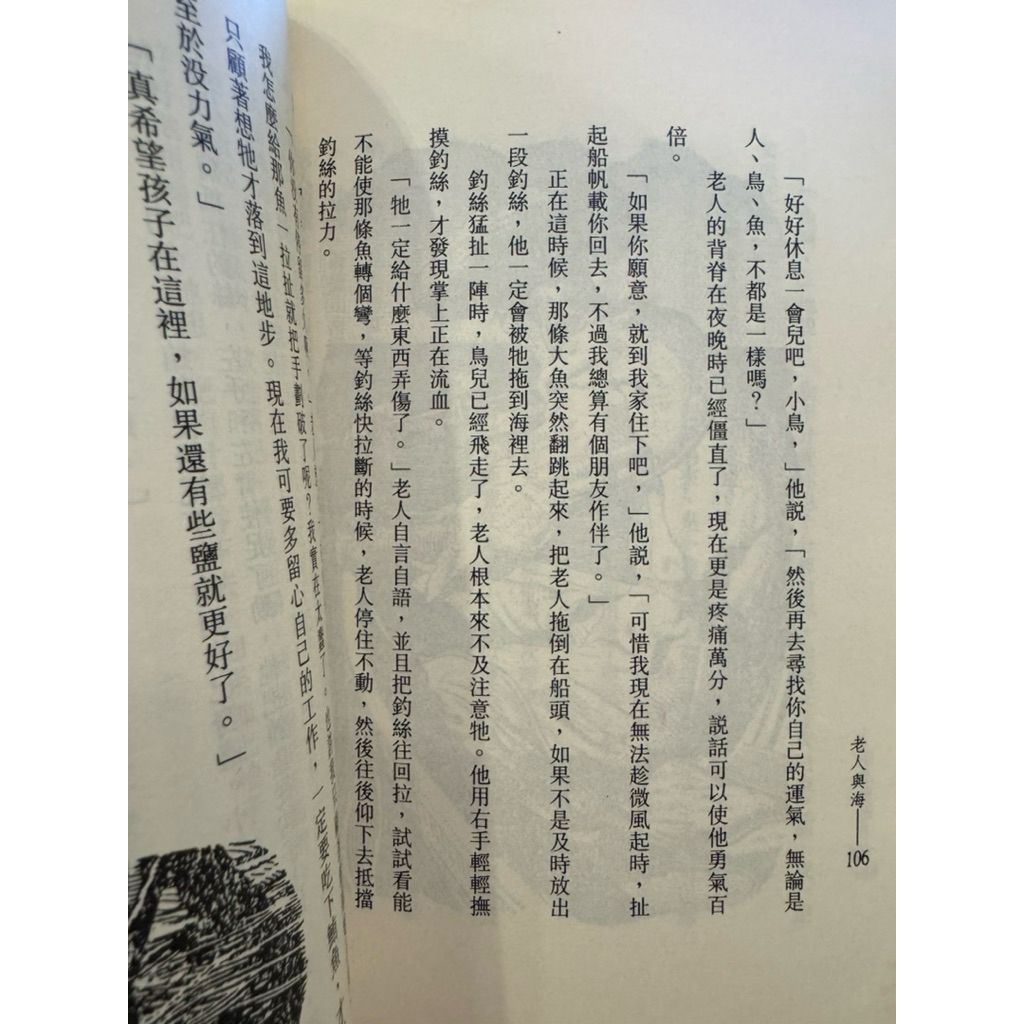 老人與海——106
「好好休息一會兒吧，小鳥，」他説，「然後再去尋找你自己的運氣，無論是
人、鳥、魚，不都是一樣嗎？」
老人的背脊在夜晚時已經僵直了，現在更是疼痛萬分，説話可以使他勇氣百
倍。
「如果你願意，就到我家住下吧，」他説，「可惜我現在無法趁微風起時，扯
起船帆載你回去，不過我總算有個朋友作伴了。」
正在這時候，那條大魚突然翻跳起來，把老人拖倒在船頭，如果不是及時放出
一段釣絲，他一定會被牠拖到海裡去。
釣絲猛扯一陣時，鳥兒已經飛走了，老人根本來不及注意牠。他用右手輕輕撫
摸釣絲，才發現掌上正在流血。
「牠一定給什麼東西弄傷了。」老人自言自語，並且把釣絲往回拉，試試看能
不能使那條魚轉個彎，等釣絲快拉斷的時候，老人停住不動，然後往後仰下去抵擋
釣絲的拉力。
我怎麼給那魚一拉扯就把手劃破了呢？我實在太
只顧著想牠才落到這地步。現在我可要多留心自己的工作，一定要吃下
至於没力氣。」
「真希望孩子在這裡，如果還有些鹽就更好了。」